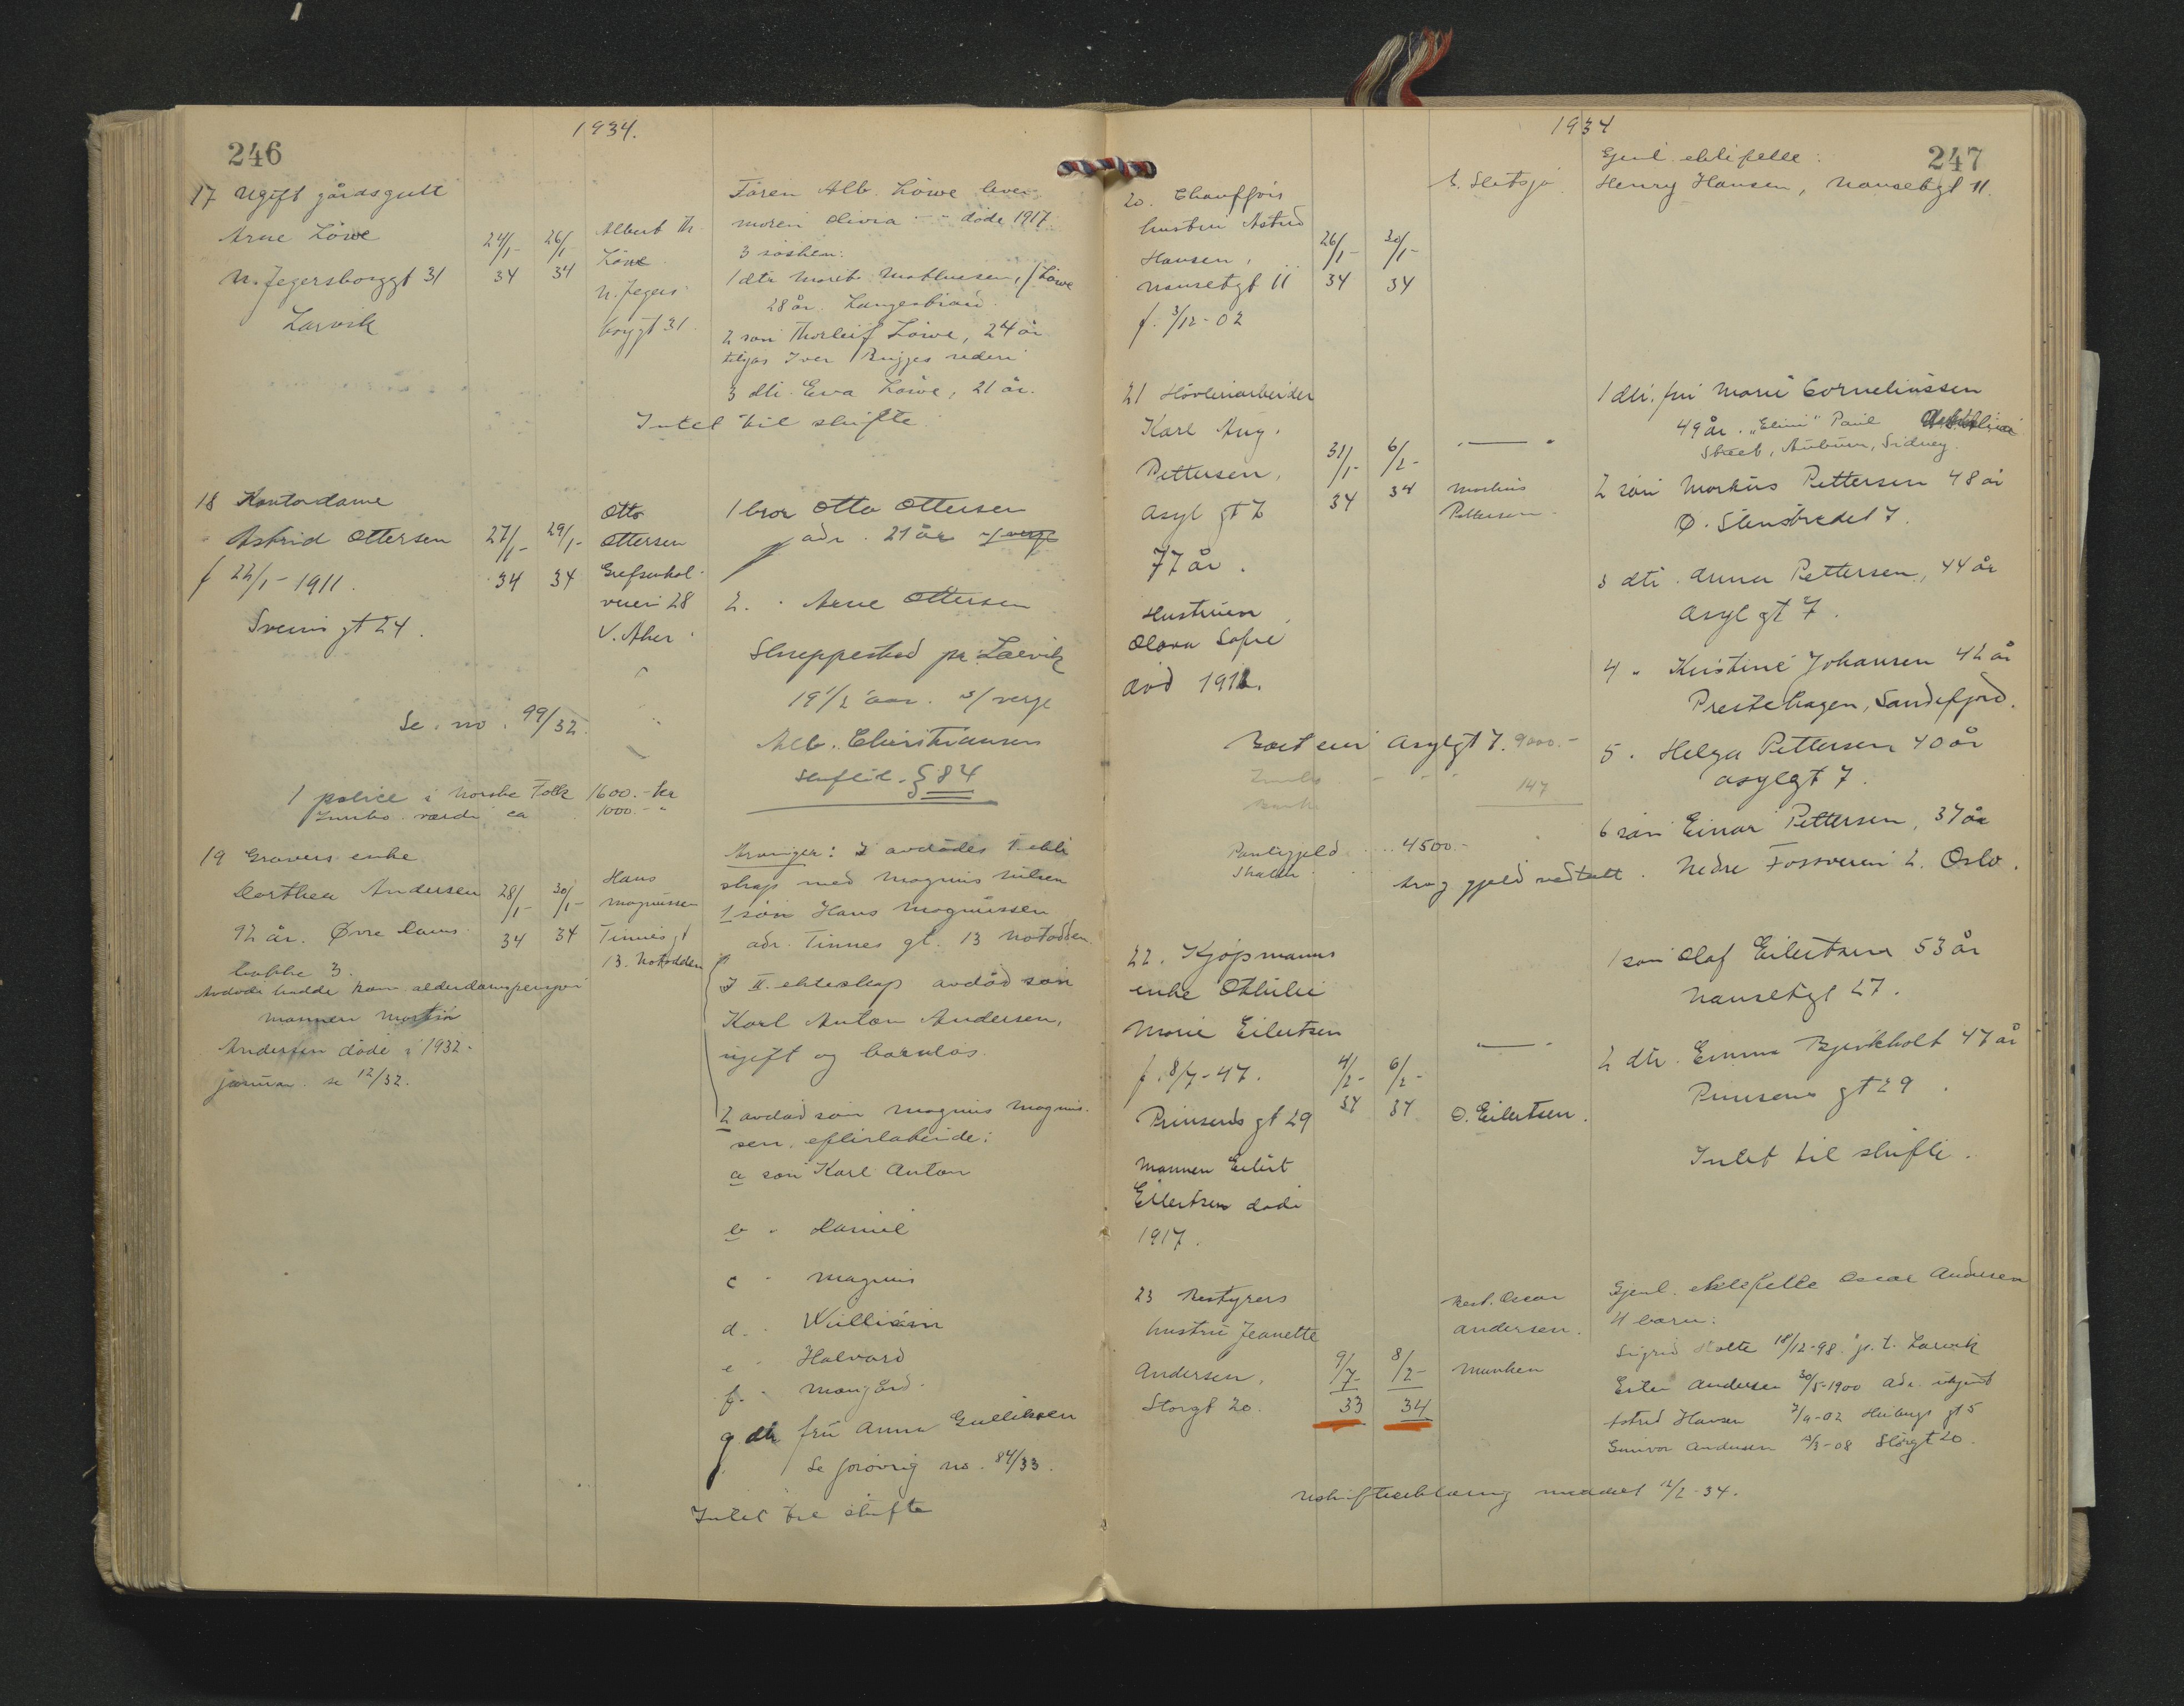 246
1934.
17 Ugift gårdsgutt
Arne Löwe
N. Jegersborggt 31
Larvik
24/1- 34
26/1 34
Albert Th.
Löwe
N. Jegers-
borggt 31.
Faren Alb. Löwe lever
moren Olivia - " - døde 1917
3 søsken:
1 dtr Marit Mathiesen, f. Löwe
28 år. Langestrand.
2 søn Thorleif Löwe, 24 år
Iver Bugges rederi
3 dtr. Eva Löwe, 21 år.
Intet til skifte.
18 Kontordame
Astrid Ottersen
f 22/1-1911.
Sveins gt 24.
27/1- 34
29/1- 34
Otto
Ottersen
Grefsenkol-
veien 28
V. Aker.
1 bror Otto Ottersen
adr. 21 år m/verge
2. " Arne Ottersen
Skreppestad pr. Larvik
19 1/2 aar. m/ verge
Alb. Christiansen
Se. no. 99/32.
§ 84
1 police i Norske Folk 1600.- kr
Innbo værdi ca 1000.- "
19 Gravers enke
Dorthea Andersen
92 år. Øvre Dams-
bakke 3.
Avdøde hadde kom. alderdomspensjon
Mannen Martin
Andersen døde i 1932.
januar. se 12/32.
28/1- 34
30/1- 34
Hans
Magnussen
Tinnes gt
13. Notodden
Arvinger: I avdødes I. ekte-
skap med Magnus Nilsen
1 søn Hans Magnussen
adr. Tinnes gt. 13 Notodden.
I II. ekteskap avdød søn
Karl Anton Andersen,
ugift og barnløs.
2 avdød søn Magnus Magnus-
sen. efterlatende:
a søn Karl Anton
b " Daniel
c " Magnus
d. " William
e " Halvard
f. "
g dtr fru Anna Gulliksen
Se forøvrig no. 84/33.
Intet til skifte
1934
247
20. Chaufførs
hustru Astrid
Hansen,
Nansetgt 11
f. 3/12-02
26/1- 34
30/1- 34
Gjenl. ektefelle:
Henry Hansen, Nansetgt 11.
21 Høvleriarbeider
Karl Aug.
Pettersen,
Asylgt 7
77 år.
Hustruen
Olava Sofie
død 1912.
31/1- 34
6/2- 34
" — "
Markus
Pettersen
1 dtr. fru Marie Corneliussen
49 år. "Elim" Paul
Street, Auburn, Sidney.
2 søn Markus Pettersen 48 år
Ø. Stenbredet 7.
3 dtr. Anna Pettersen, 44 år
Asylgt 7.
4 " Kristine Johansen 42 år
Prestehagen, Sandefjord.
5. Helga Pettersen 40 år
Asylgt 7.
6 søn Einar Pettersen, 37 år
Nedre Fossveien 2. Oslo.
Boet eier Asylgt 7. 9000.-
Innbo - - -
Bank 147
Pantegjeld .... 4500.-
Skatter
Arv og gjeld vedtatt.
22. Kjøpmanns
enke Othilie
Marie Eilertsen
f. 8/7-47.
Prinsens gt 29
Mannen Eilert
Eilertsen døde
1917.
4/2- 34
6/2- 34
" — "
O. Eilertsen.
1 søn Olaf Eilertsen 53 år
Nansetgt 27.
2 dtr. Emma Bjerkholt 47 år
Prinsens gt 29.
Intet til skifte.
23 Bestyrers
hustru Jeanette
Andersen,
Storgt 20.
9/7 33
8/2- 34
Best. Oscar
Andersen.
Munken
Gjenl. ektefelle Oscar Andersen
4 barn:
Sigrid Holte 18/12-98. p.t. Larvik
Ester Andersen 30/5-1900 adr. ukjent
Astrid Hansen 7/9-02 Heibergs gt 5
Gunvor Andersen /3-08 Storgt 20.
Uskifteerklæring meddelt 12/2-34.